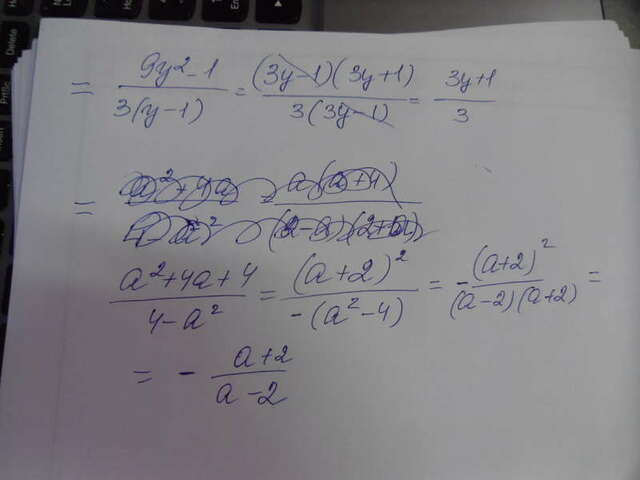 = 9y²-1 / 3(y-1) = (3y-1)(3y+1) / 3(3y-1) = 3y+1 / 3
=
a²+4a+4 / 4-a² = (a+2)² / -(a²-4) = - (a+2)² / (a-2)(a+2) =
= - a+2 / a-2
Delete